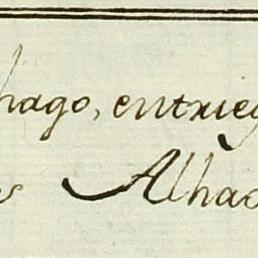 hago, entrieg
s Alhac